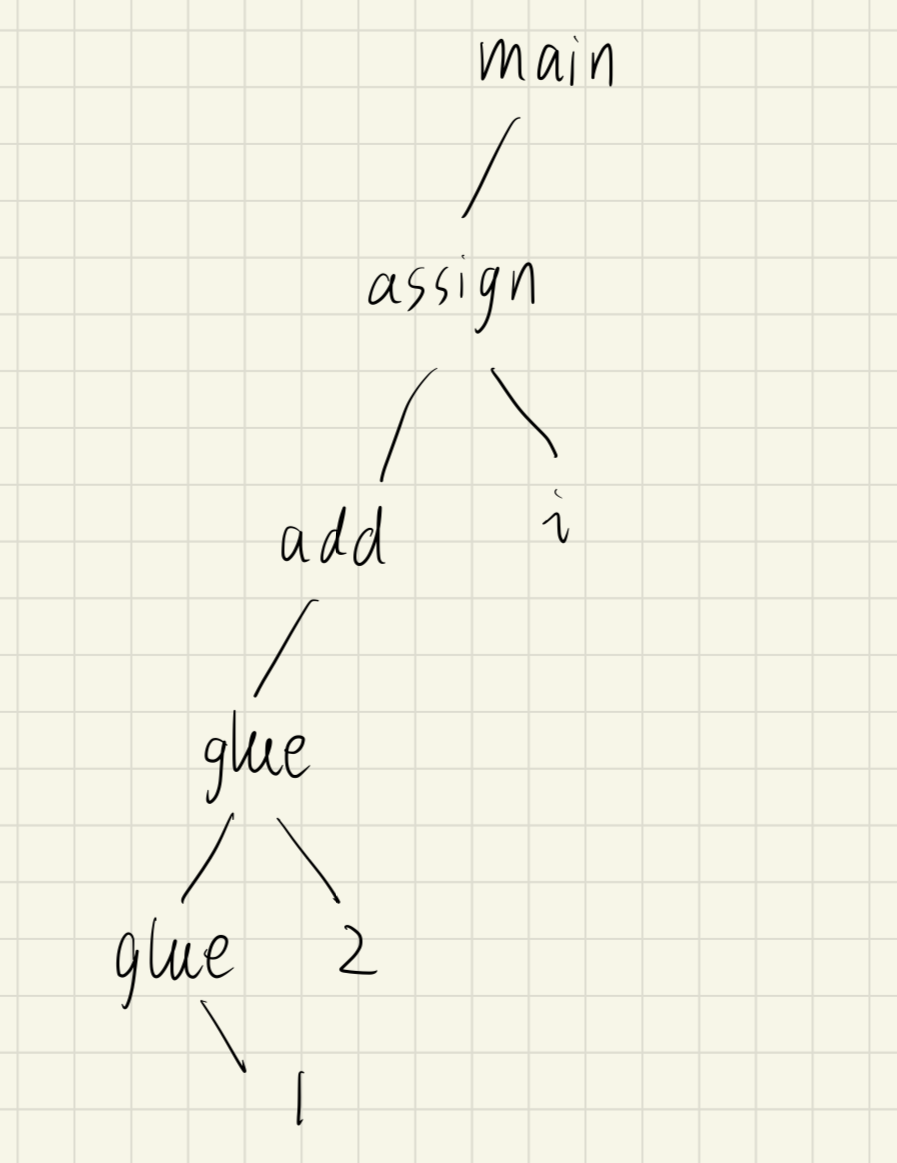 main
assign
add i
glue
glue 2
1